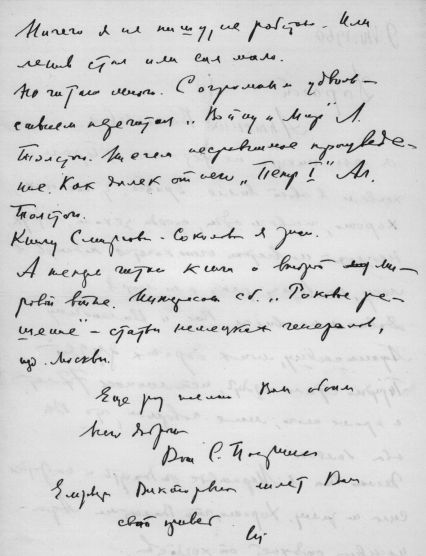 Ничего я не пишу, не работаю. Или
ленив стал или сил мало.
Но читаю много. С огромным удоволь-
ствием перечитал „Войну и Мир" Л.
Толстого. несравненное произведе-
ние. Как далек от него „Петр I" Ал.
Толстого.
Книгу Смирнова-Сокольского я знаю.
А теперь читаю книги о второй ми-
ровой войне. Интересен сб. „Роковые ре-
шения" – статьи немецких генералов,
изд. Москвы.
Еще раз желаю Вам обоим
всего доброго
Ваш С.
Викторовна шлет Вам
свой привет.